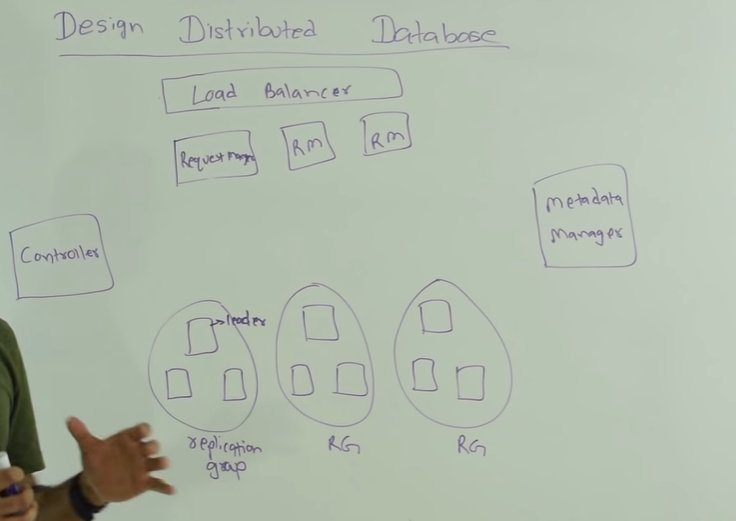 Design Distributed Database
Load Balancer
Request manager
RM
RM
Metadata
Manager
Controller
leader
replication
group
RG
RG